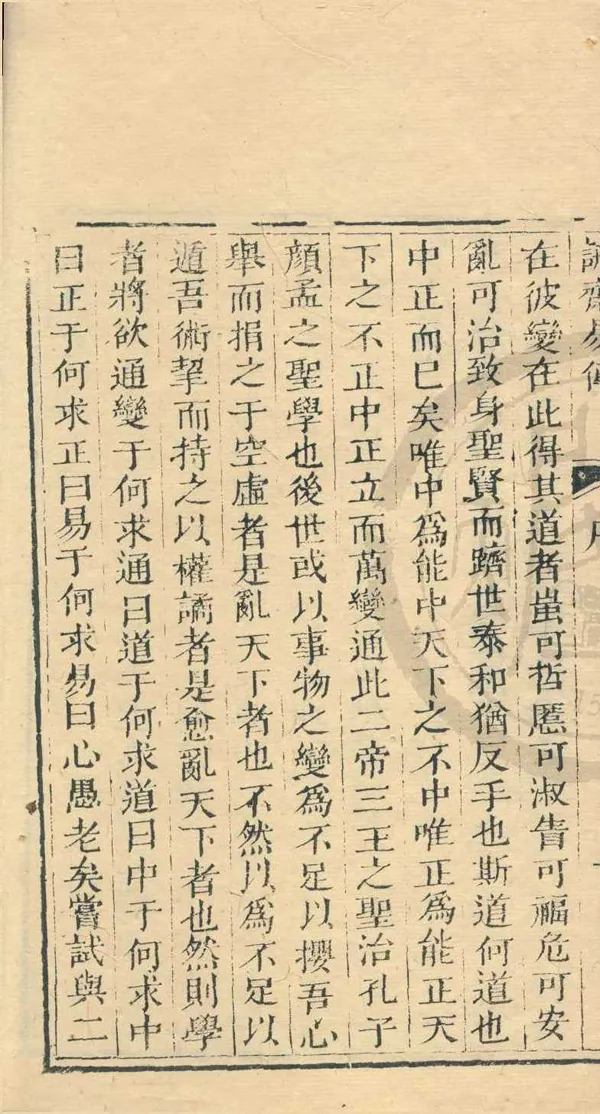 誠齋易傳 序
在彼變在此得其道者蚩可哲慝可淑眚可福危可安
亂可治致身聖賢而躋世泰和猶反手也斯道何道也
中正而已矣唯中爲能中天下之不中唯正爲能正天
下之不正中正立而萬變通此二帝三王之聖治孔子
顔孟之聖學也後世或以事物之變爲不足以攖吾心
舉而捐之于空虛者是亂天下者也不然以爲不足以
遁吾術挈而持之以權譎者是愈亂天下者也然則學
者將欲通變于何求通曰道于何求道曰中于何求中
曰正于何求正曰易于何求易曰心愚老矣嘗試與二